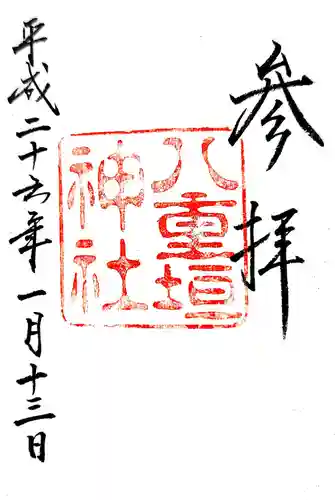 参拝
八重垣
神社
平成二十六年一月十三日